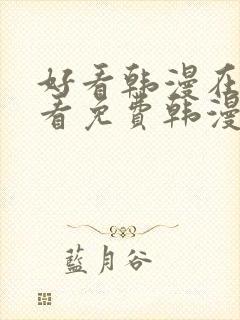 好看韩漫在
看免费韩漫
蓝月谷